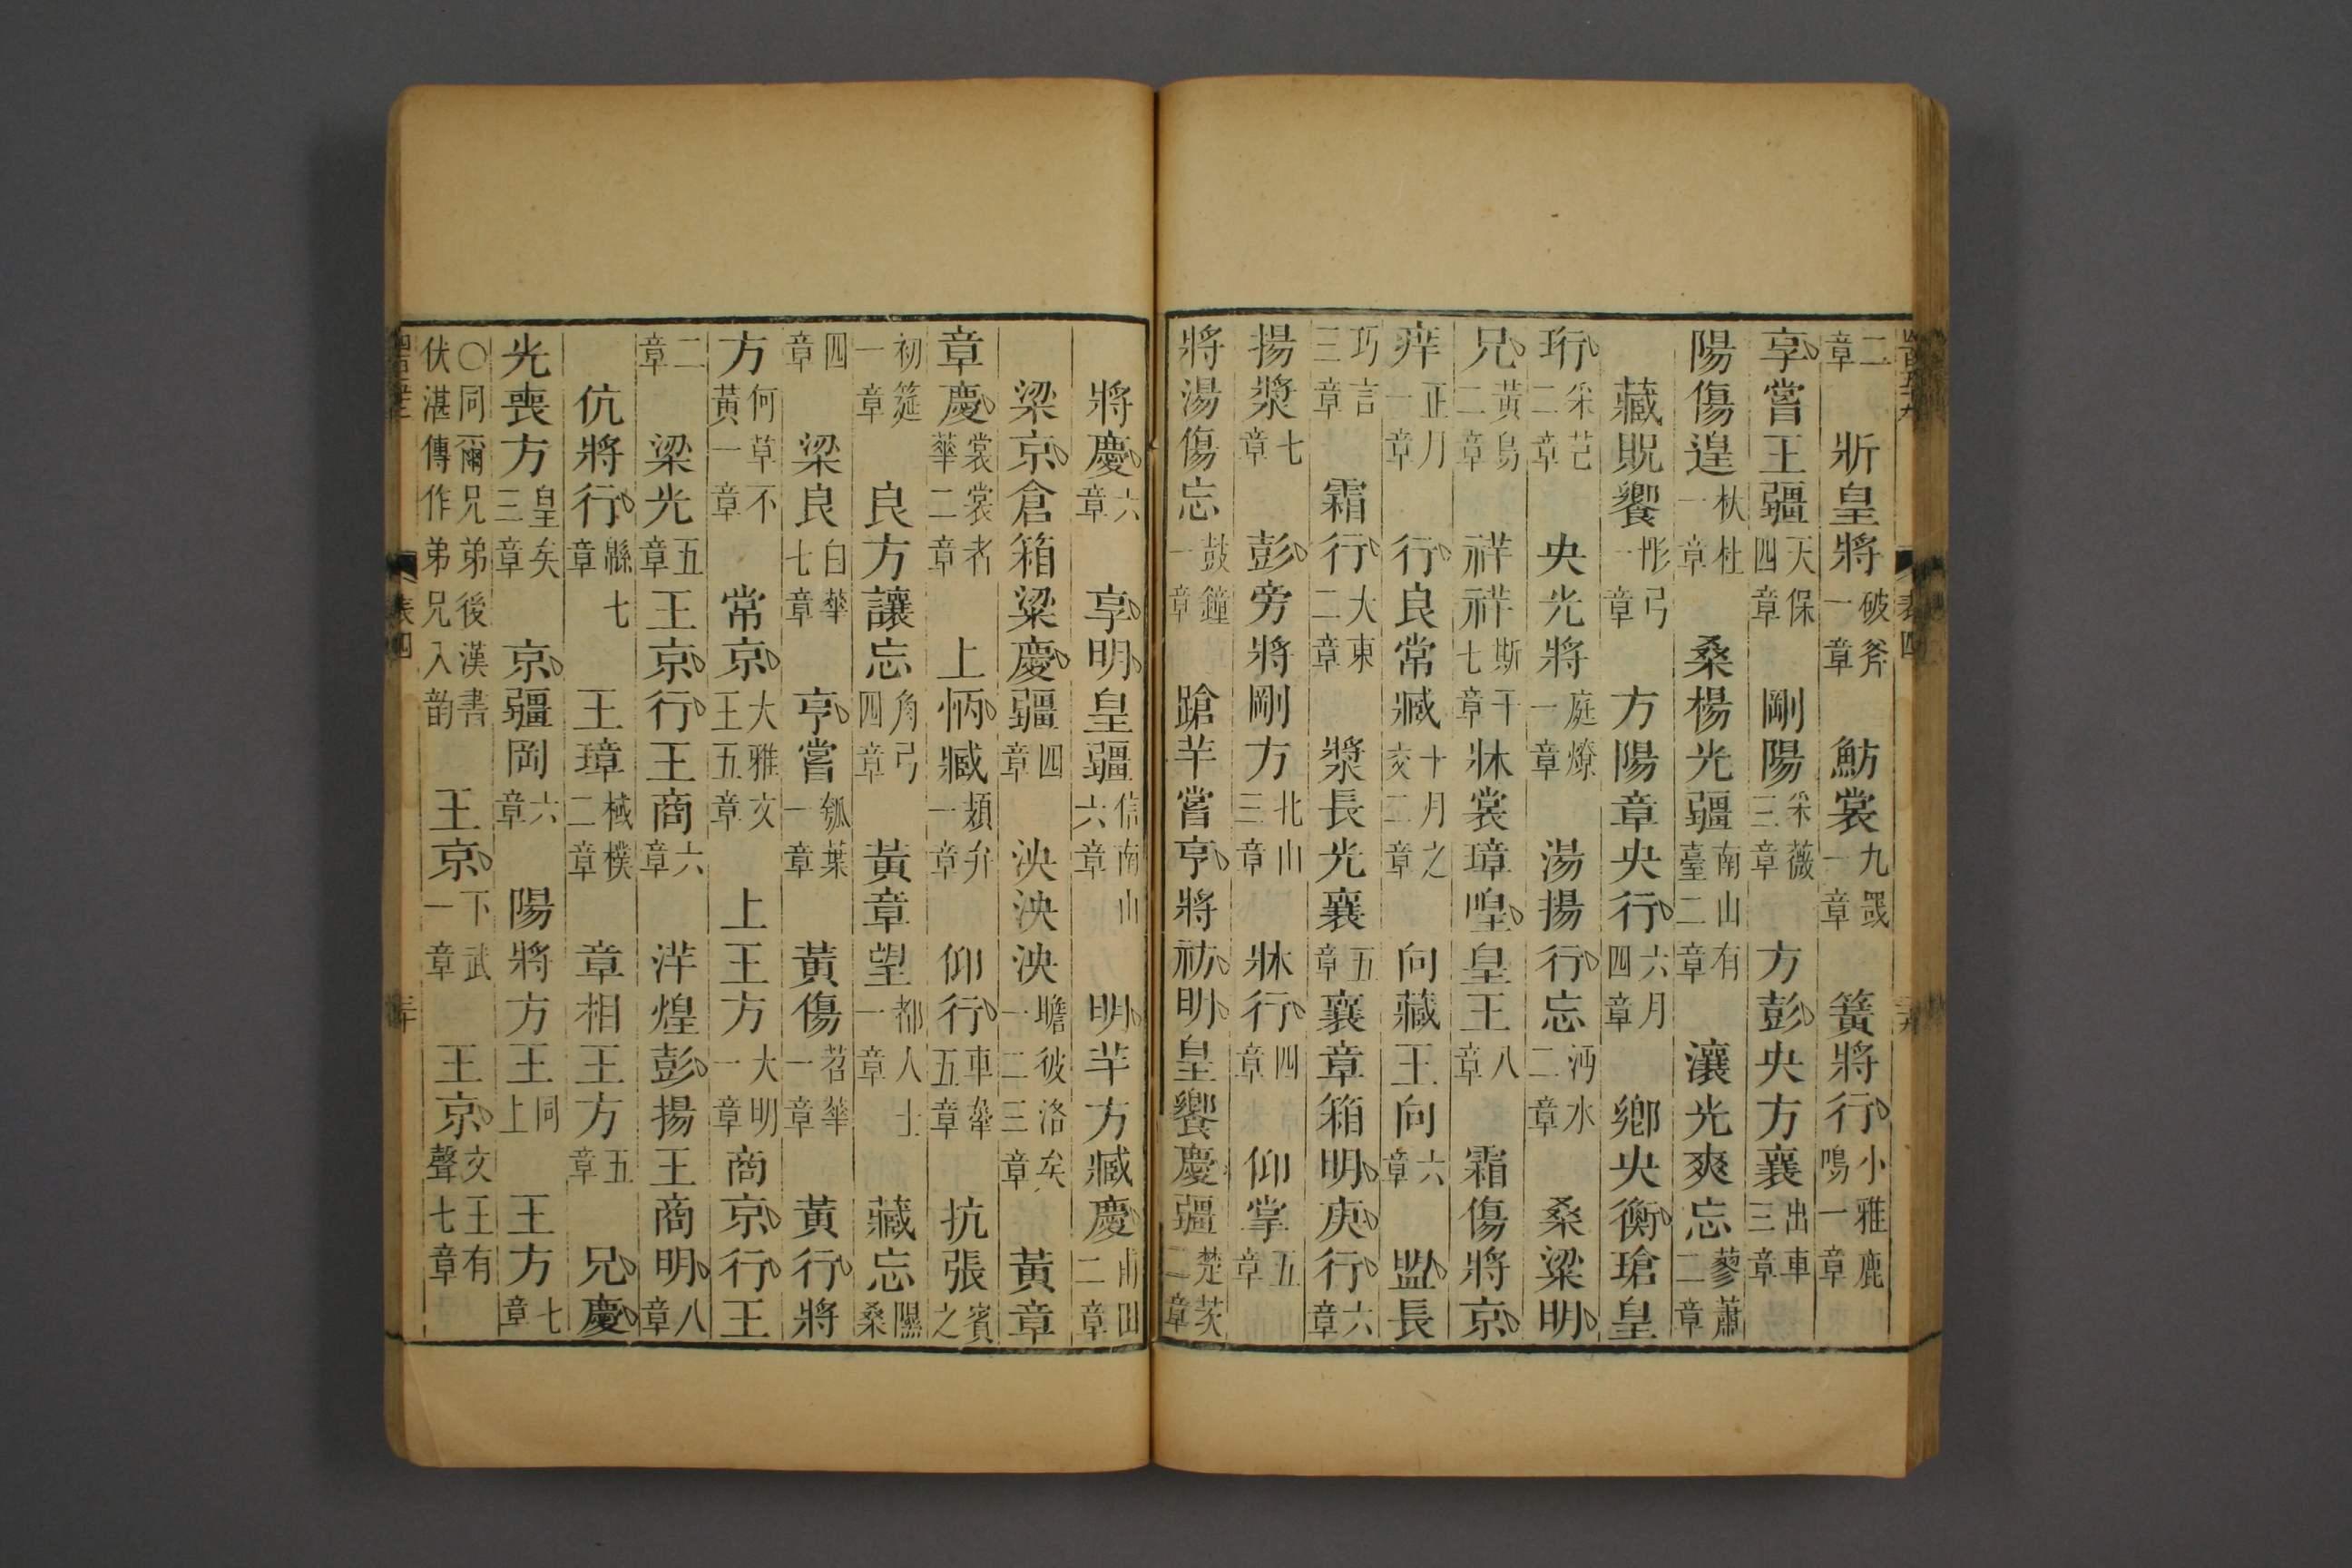 二章　斨皇將破斧一章　魴裳九罭一章　簧將行小雅鹿鳴一章
享嘗王疆天保四章　剛陽采薇三章　方彭央方襄出車三章
陽傷遑杕杜一章　桑楊光疆南山有臺二章　瀼光爽忘蓼蕭二章
藏貺饗彤弓一章　方陽章央行六月四章　鄉央衡瑲皇
珩采芑二章　央光將庭燎一章　湯揚行忘沔水二章　桑粱明
兄黃鳥二章　祥祥斯干七章　牀裳璋喤皇王八章　霜傷將京
痒正月一章　行良常臧十月之交二章　向藏王向六章　盟長
巧言三章　霜行大東二章　漿長光襄五章　襄章箱明庚行六章
揚漿七章　彭旁將剛方北山三章　牀行四章　仰掌五章
將湯傷忘鼓鐘一章　蹌羊嘗亨將祊明皇饗慶疆楚茨二章
將慶六章　享明皇疆信南山六章　明羊方臧慶甫田二章
梁京倉箱粱慶疆四章　泱泱泱瞻彼洛矣一二三章　黃章
章慶裳裳者華二章　上怲臧頍弁一章　仰行車舝五章　抗張賓之
初筵一章　良方讓忘角弓四章　黃章望都人士一章　藏忘隰桑
四章　梁良白華七章　亨嘗瓠葉一章　黃傷苕華一章　黃行將
方何草不黃一章　常京大雅文王五章　上王方大明一章　商京行王
二章　梁光五章　王京行王商六章　洋煌彭揚王商明八章
伉將行緜七章　王璋棫樸二章　章相王方五章　兄慶
光喪方皇矣三章　京疆岡六章　陽將方王同上　王方七章
〇同爾兄弟後漢書伏湛傳作弟兄入韵　王京下武一章　王京文王有聲七章
表四
表四